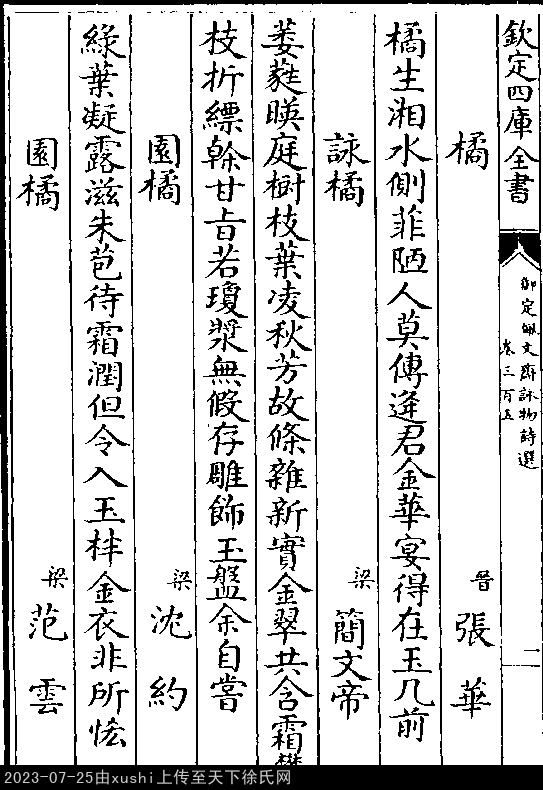 欽定四庫全書
御定佩文齋詠物詩選
卷三百五
二
橘
晉
張華
橘生湘水側菲陋人莫傳逢君金華宴得在玉几前
詠橘
梁
簡文帝
萎蕤暎庭樹枝葉凌秋芳故條雜新實金翠共含霜攀
枝折縹榦甘㫖若瓊漿無假存雕飾玉盤余自嘗
園橘
梁
沈約
綠葉凝露滋朱苞待霜潤但令入玉柈金衣非所恡
園橘
梁
范雲
2023-07-25由xushi上传至天下徐氏网